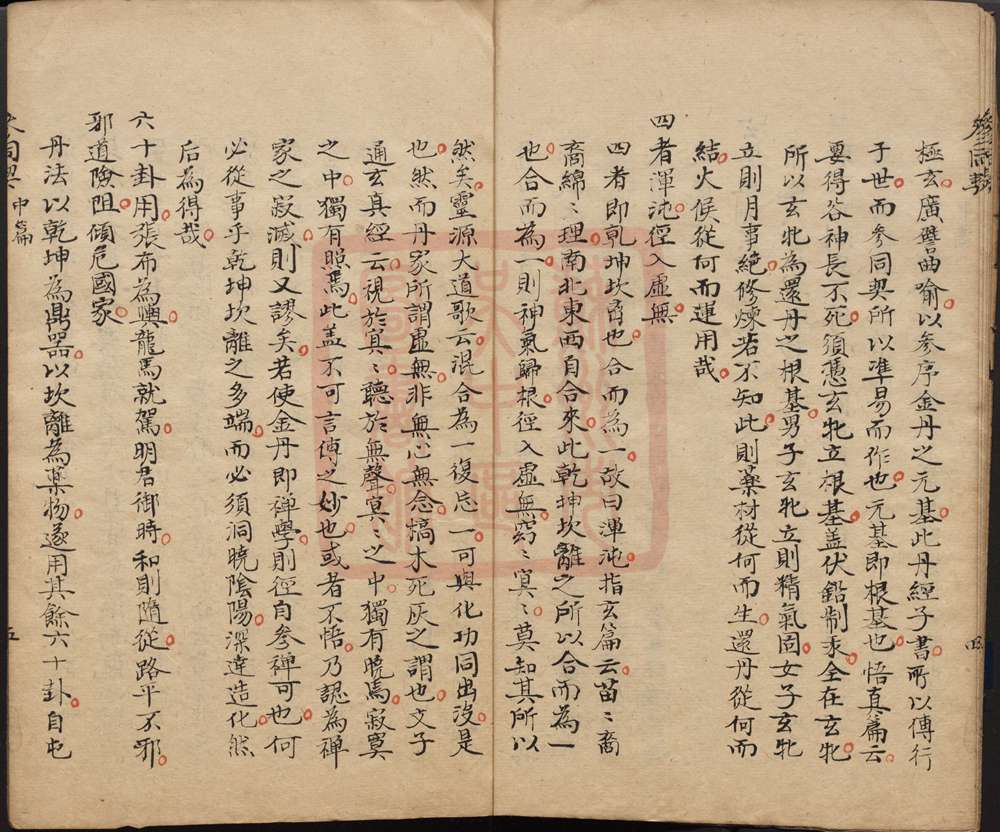 極玄廣譬曲喻以參序金丹之元基此丹經子書所以傳行
于世而參同契所以準易而作也元基即根基也悟真篇云
要得谷神長不死須憑玄牝立根基盖伏鉛制汞全在玄牝
所以玄牝為還丹之根基男子玄牝立則精氣固女子玄牝
立則月事絶修煉若不知此則藥材從何而生還丹從何而
結火候從何而運用哉
四者渾沌徑入虛無
四者即乹坤坎离也合而為一故曰渾沌指玄篇云苗〻裔
裔綿〻理南北東西自合來此乾坤坎離之所以合而為一
也合而為一則神氣歸根徑入虛無窈〻冥〻莫知其所以
然矣靈源大道歌云混合為一復忘一可與化功同出沒是
也然而丹家所謂虛無非無心無念槁木死灰之謂也文子
通玄真經云視於冥〻聽於無聲冥〻之中獨有曉焉寂寞
之中獨有照焉此盖不可言傳之妙也或者不悟乃認為禪
家之寂滅則又謬矣若使金丹即禪學則徑自參禪可也何
必從事乎乾坤坎離之多端而必須洞曉陰陽深達造化然
后為得哉
六十卦用張布為輿龍馬就駕明君御時和則隨從路平不邪
邪道險阻傾危國家
丹法以乾坤為鼎器以坎離為藥物遂用其餘六十卦自屯
同契 中篇
五
四